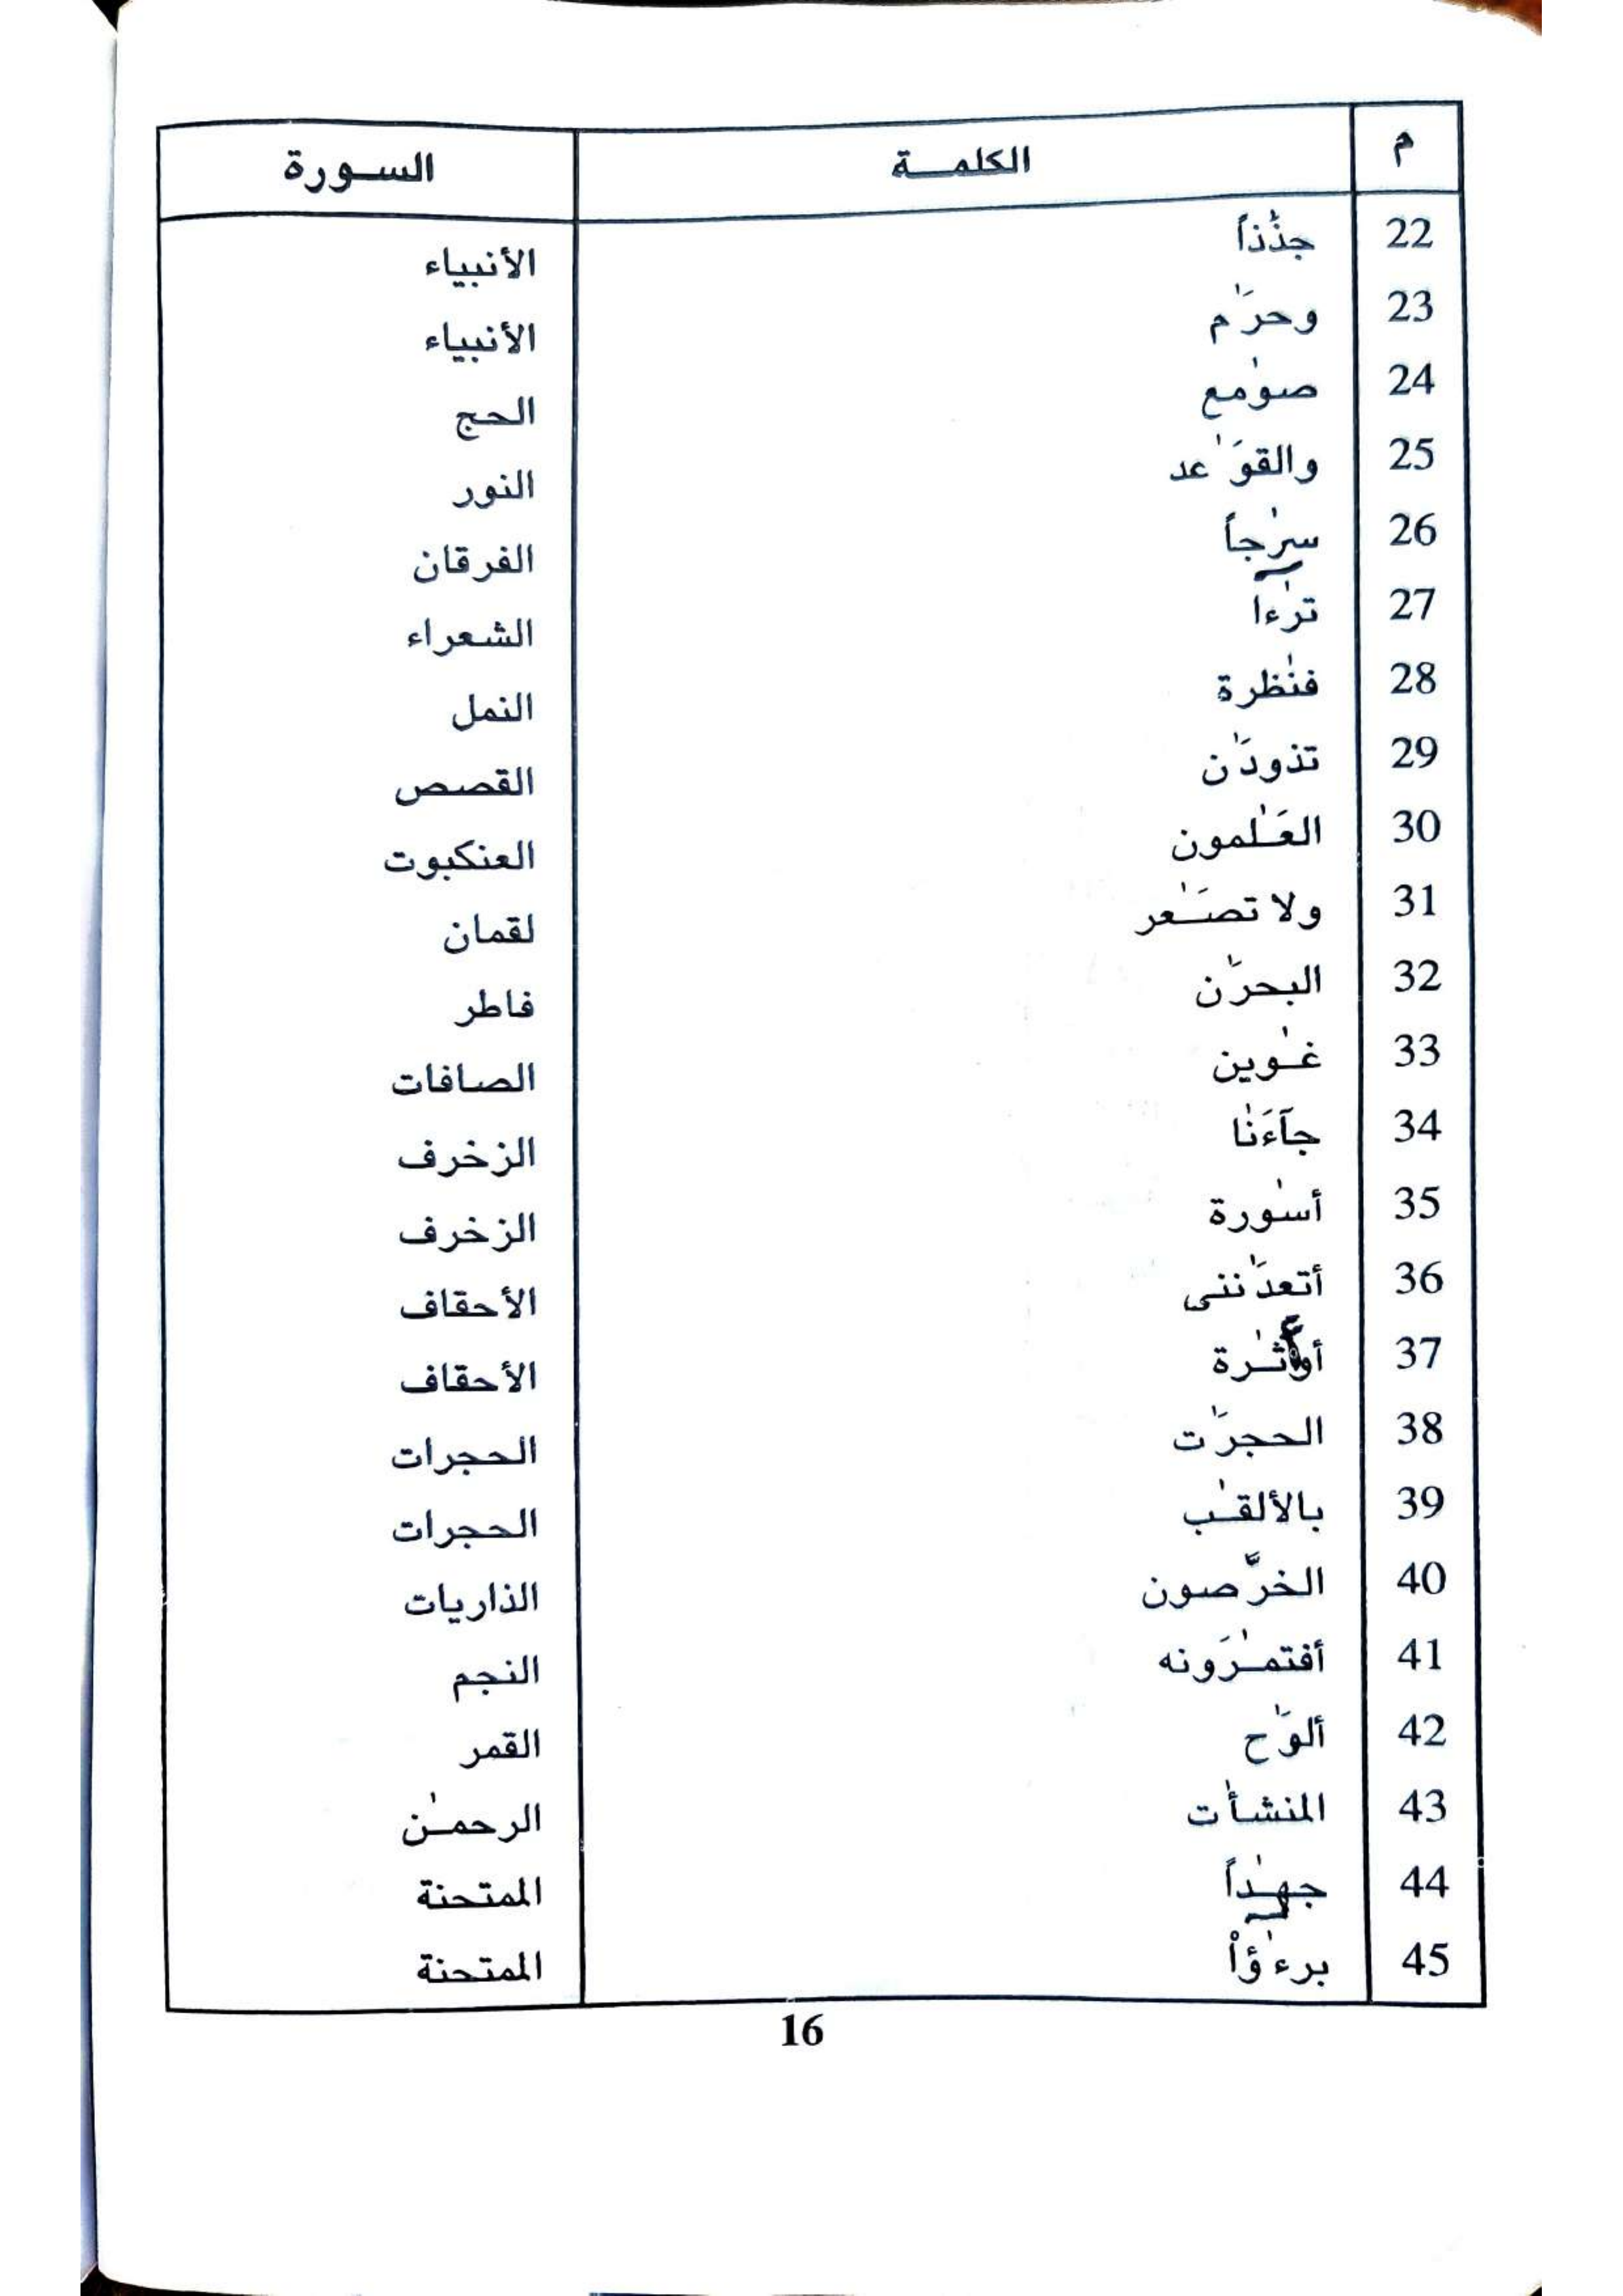 م الكلمـــة الســورة
22 جذٰذاً الأنبياء
23 وحرَٰم الأنبياء
24 صوٰمع الحج
25 والقوَٰعد النور
26 سرٰجاً الفرقان
27 ترٰءا الشعراء
28 فنٰظرة النمل
29 تذودَٰن القصص
30 العَـٰلمون العنكبوت
31 ولا تصَـٰعر لقمان
32 البحرَٰن فاطر
33 غـٰوين الصافات
34 جآءَنٰا الزخرف
35 أسٰورة الزخرف
36 أتعدَٰننى الأحقاف
37 الأحقاف
38 الحجرَٰت الحجرات
39 بالألقـٰب الحجرات
40 الخرَّٰصون الذاريات
41 أفتمـٰرَونه النجم
42 ألوَٰح القمر
43 المنشـأٰت الرحمـٰن
44 جهـٰداً الممتحنة
45 برءٰؤاْ الممتحنة
16